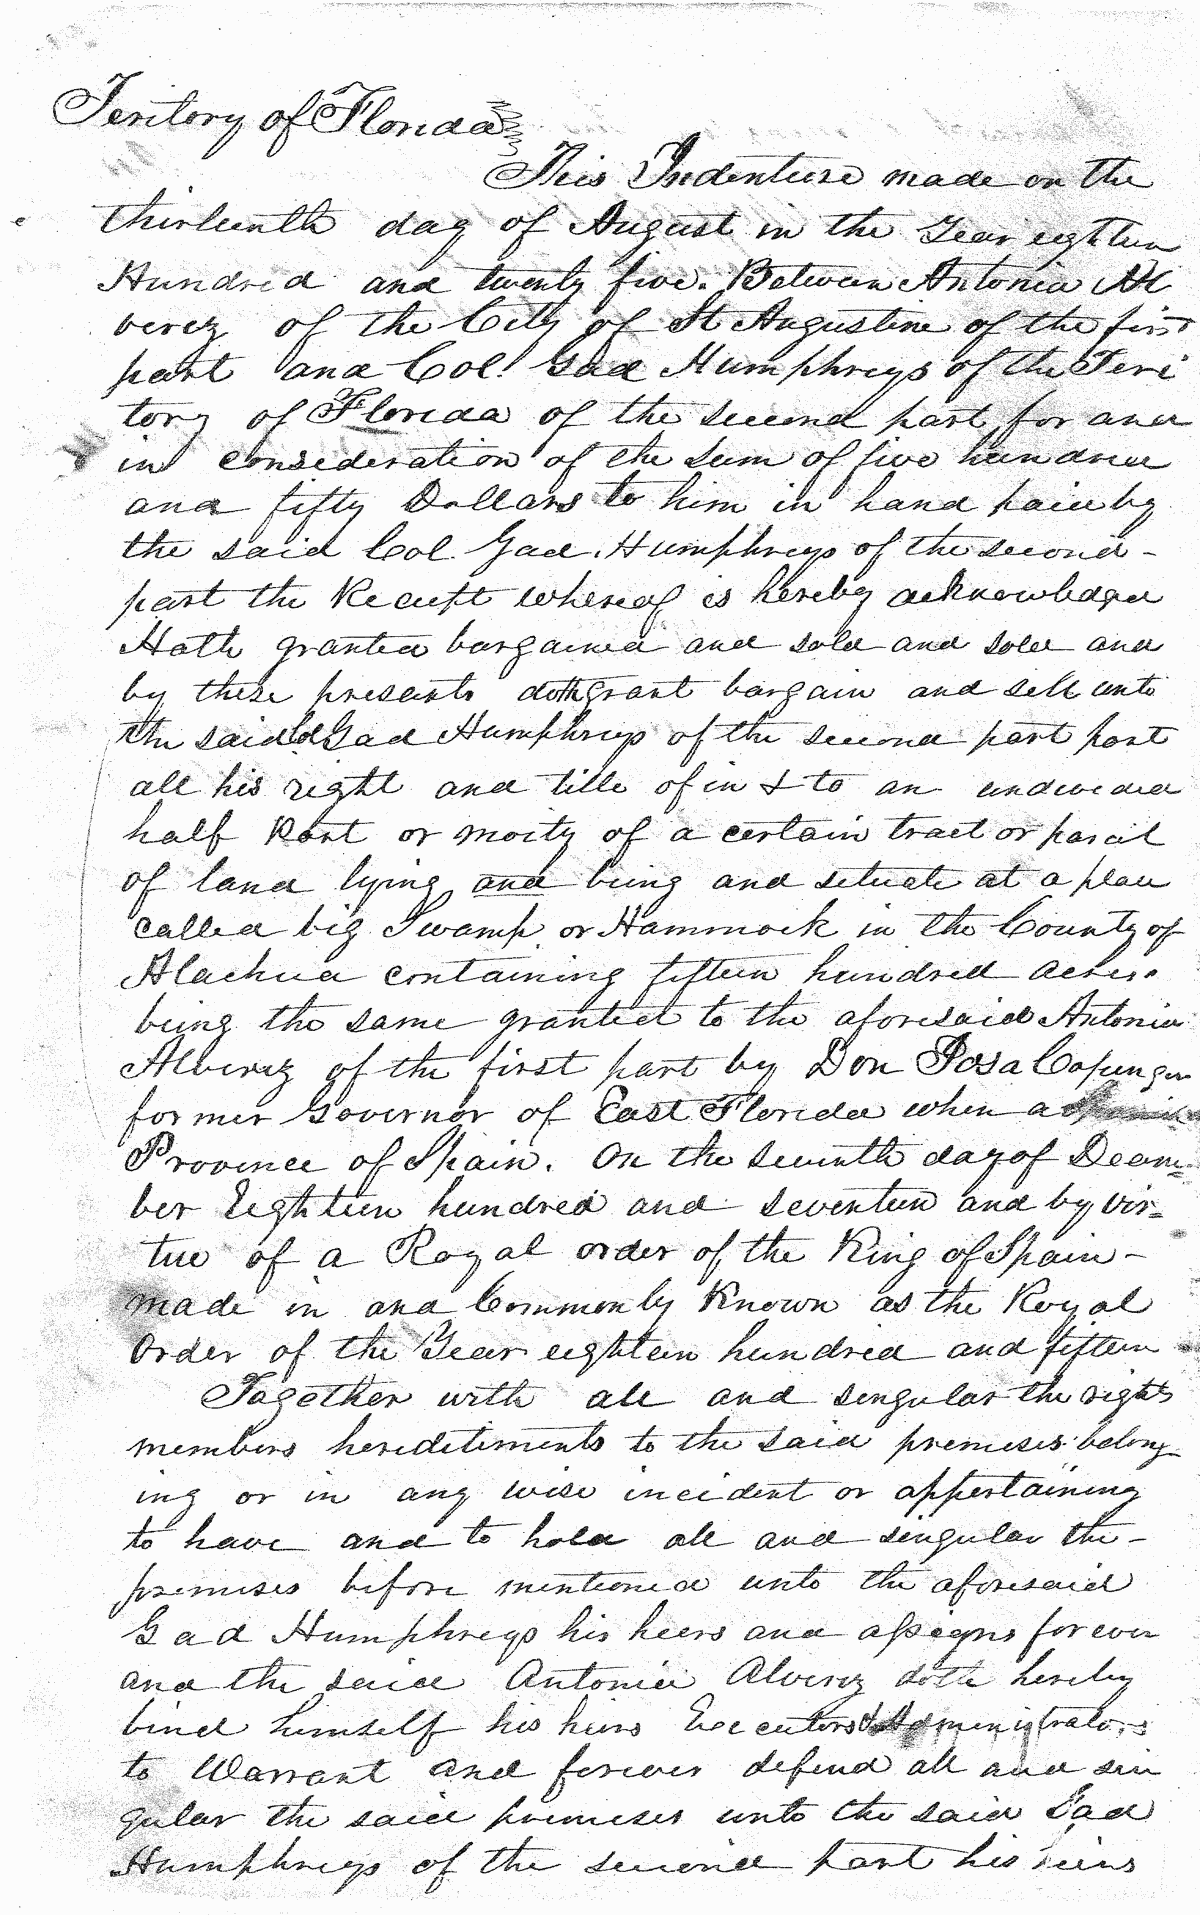 Teritory of Florida
This Indenture made on the
thirteenth day of August in the Year eighteen
Hundred and twenty five. Between Antonia Al
verez of the City of St Augustine of the first
part and Col. Gad Humphreys of the Teri
tory of Florida of the second part for and
in consideration of the sum of five hundred
and fifty Dollars to him in hand paid by
the said Col Gad Humphreys of the second -
part the Receipt whereof is hereby acknowledged
Hath granted bargained and sold and sold and
by these presents doth grant bargain and sell unto
the said Col Gad Humphreys of the second part part
all his right and title of in & to an undivided
half Part or moity of a certain tract or parcil
of land lying and being and situate at a place
called big Swamp or Hammock in the County of
Alachua containing fifteen hundred acres.
being the same granted to the aforesaid Antonia
Alverez of the first part by Don Josa Copenger
former Governor of East Florida when a
Province of Spain. On the seventh day of Decem=
ber Eighteen hundred and seventeen and by vir=
tue of a Royal order of the King of Spain -
made in and Commonly Known as the Royal
Order of the Year eighteen hundred and fifteen
Together with all and singular the rights
members hereditiments to the said premises belong
ing or in any wise incident or appertaining
to have and to hold all and singular the -
premises before mentioned unto the aforesaid
Gad Humphreys his heers and assigns forever
and the said Antonia Alverez doth hereby
bind himself his heirs Executors & Administrators
to Warrant and forever defend all and sin
gular the said premises unto the said Gad
Humphreys of the second part his heirs